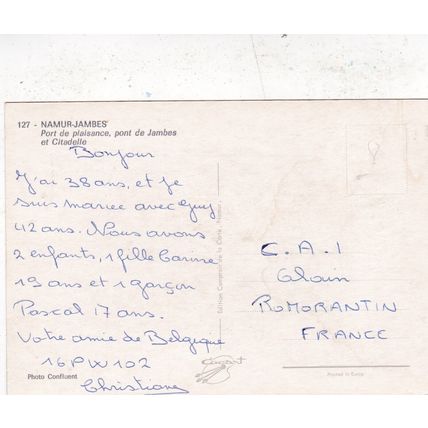 127 - NAMUR-JAMBES
Port de plaisance, pont de Jambes
et Citadelle
Bonjour
J'ai 38 ans, et je
suis mariée avec Guy
42 ans. Nous avons
2 enfants, 1 fille Carine
19 ans et 1 garçon
Pascal 17 ans.
Votre amie de Belgique
16 PW 102
Christiane
Photo Confluent
C.A.I
Alain
ROMORANTIN
FRANCE
Printed in Europ